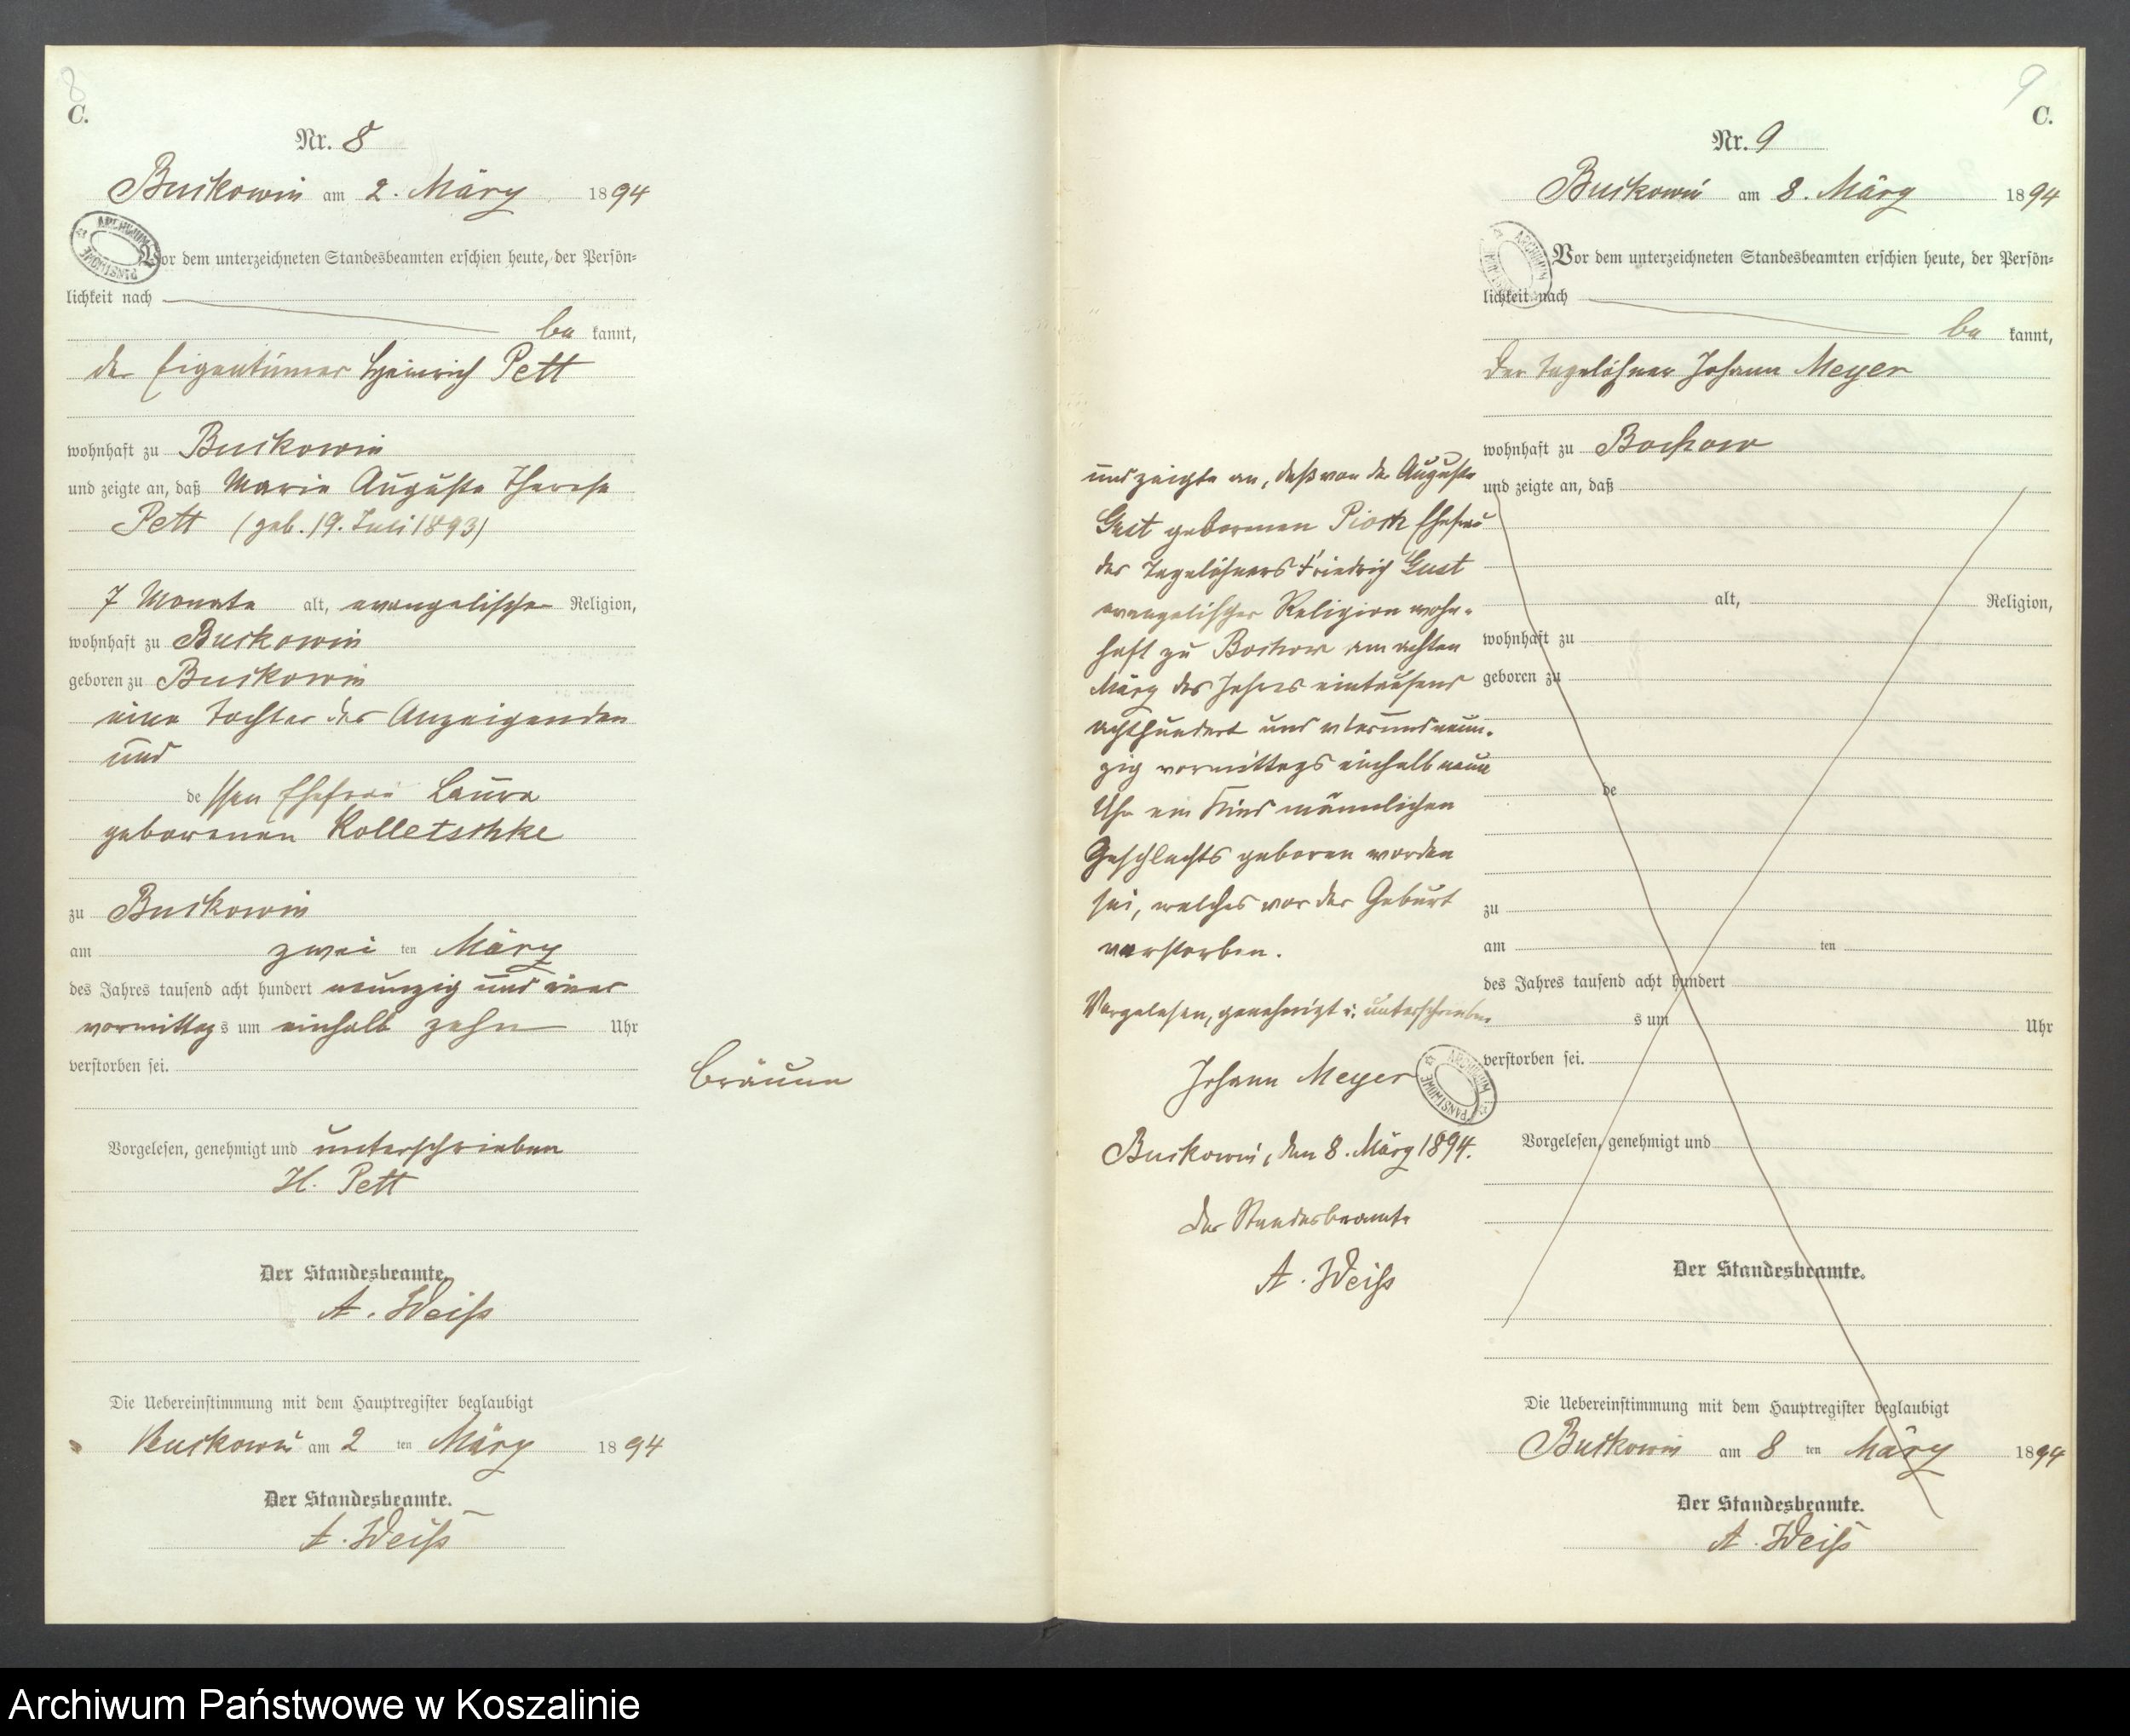 8
C.
Nr. 8
Buckowin am 2. März 1894
ARCHIWUM PAŃSTWOWE
Vor dem unterzeichneten Standesbeamten erschien heute, der Persön=
lichkeit nach
be kannt,
der Eigentümer Heinrich Pett
wohnhaft zu Buckowin
und zeigte an, daß Marie Auguste Therese
Pett (geb. 19. Juli 1893)
7 Monate alt, evangelischer Religion,
wohnhaft zu Buckowin
geboren zu Buckowin
eine Tochter des Anzeigenden
und
de ssen Ehefrau Laura
geborenen Kolletschke
zu Buckowin
am zwei ten März
des Jahres tausend acht hundert neunzig und vier
vormittag s um einhalb zehn Uhr
verstorben sei.
Bräune
Vorgelesen, genehmigt und unterschrieben
H. Pett
Der Standesbeamte.
A. Weiß
Die Uebereinstimmung mit dem Hauptregister beglaubigt
Buckowin am 2 ten März 1894
Der Standesbeamte.
A. Weiß
9
C.
Nr. 9
Buckowin am 8. März 1894
ARCHIWUM PAŃSTWOWE
Vor dem unterzeichneten Standesbeamten erschien heute, der Persön=
lichkeit nach
be kannt,
der Tagelöhner Johann Meyer
wohnhaft zu Bochow
und zeigte an, daß
alt, Religion,
wohnhaft zu
geboren zu
de
zu
am ten
des Jahres tausend acht hundert
s um Uhr
verstorben sei.
Vorgelesen, genehmigt und
Der Standesbeamte.
und zeigte an, daß von der Auguste
Gust geborenen Pioch Ehefrau
des Tagelöhners Friedrich Gust
evangelischer Religion wohn-
haft zu Bochow am achten
März des Jahres eintausend
achthundert und vierundneun-
zig vormittags einhalb neun
Uhr ein Kind männlichen
Geschlechts geboren worden
sei, welches vor der Geburt
verstorben.
Vorgelesen, genehmigt u. unterschrieben
Johann Meyer
ARCHIWUM PAŃSTWOWE
Buckowin, den 8. März 1894.
Der Standesbeamte
A. Weiß
Die Uebereinstimmung mit dem Hauptregister beglaubigt
Buckowin am 8 ten März 1894
Der Standesbeamte.
A. Weiß
Archiwum Państwowe w Koszalinie